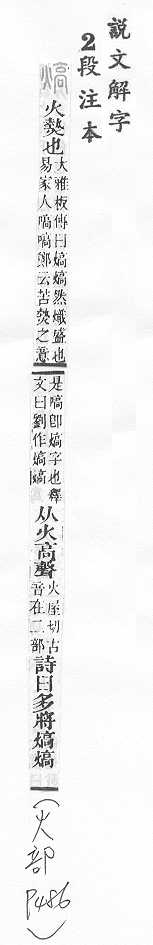 說文解字
2段注本
熇 火熱也 大雅板傳曰熇熇然熾盛也
易家人嗃嗃鄭云苦熱之意
是嗃卽熇字也釋
文曰劉作熇熇
从火高聲 火屋切古
音在二部
詩曰多將熇熇
(火部 P486)